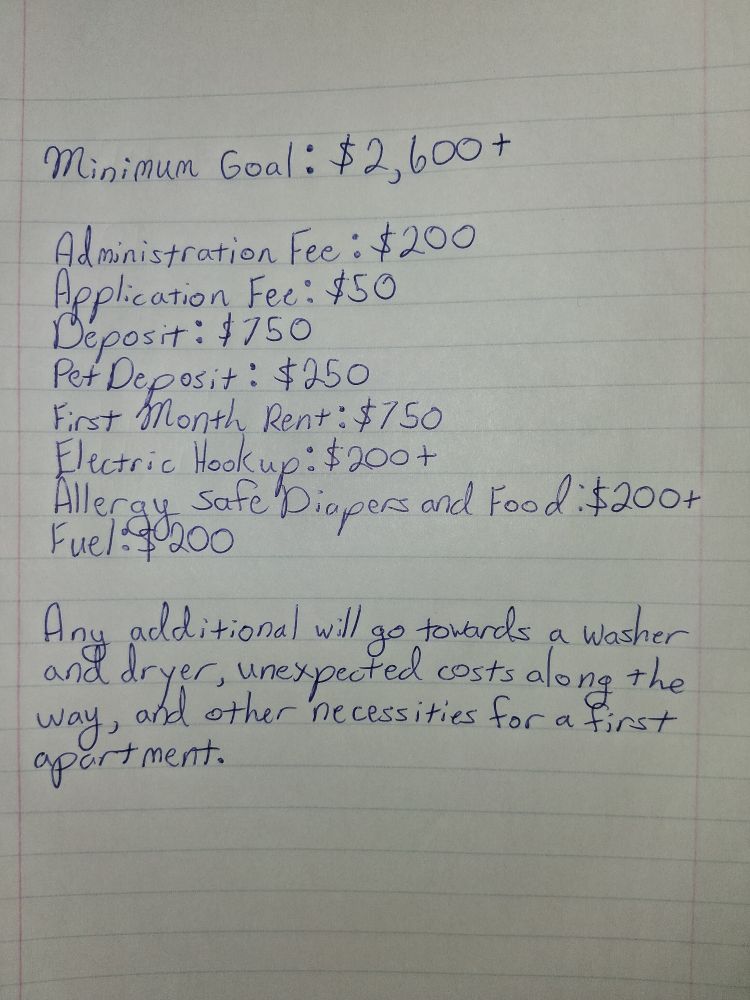 Minimum Goal: $2,600+
Administration Fee: $200
Application Fee: $50
Deposit: $750
Pet Deposit: $250
First Month Rent: $750
Electric Hookup: $200+
Allergy safe Diapers and Food: $200+
Fuel: $200
Any additional will go towards a washer
and dryer, unexpected costs along the
way, and other necessities for a first
apartment.